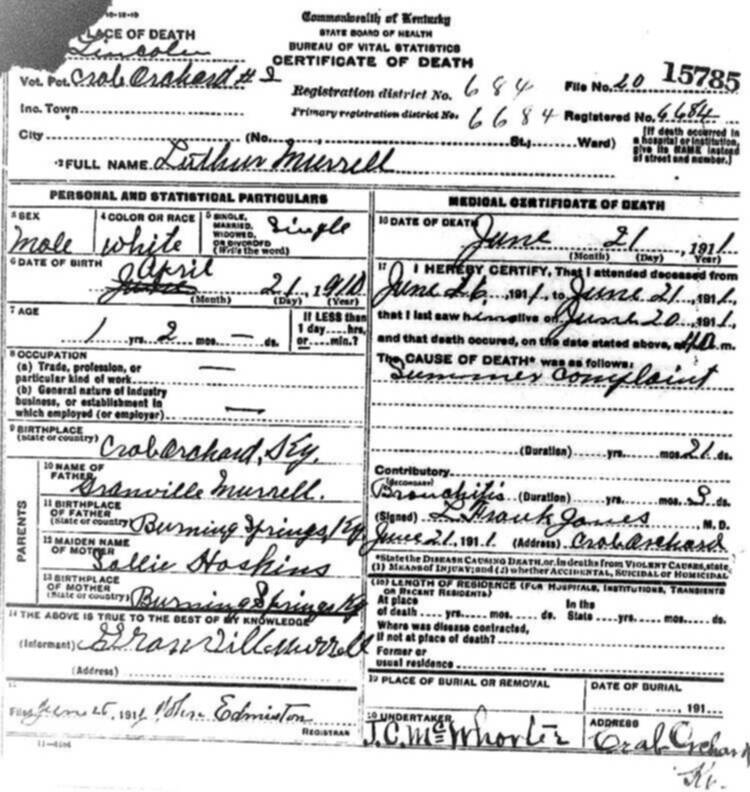 Commonwealth of Kentucky
STATE BOARD OF HEALTH
BUREAU OF VITAL STATISTICS
CERTIFICATE OF DEATH
PLACE OF DEATH
Lincoln
Vot. Pct. Crab Orchard # 2
Registration district No. 684
File No. 20
15785
Inc. Town
Primary registration district No. 6684
Registered No. 6684
City (No. St.; Ward)
[If death occurred in a hospital or institution, give its NAME instead of street and number.]
2 FULL NAME Luthur Murrell
PERSONAL AND STATISTICAL PARTICULARS
3 SEX
Male
4 COLOR OR RACE
White
5 SINGLE, MARRIED, WIDOWED, OR DIVORCED (Write the word)
Single
6 DATE OF BIRTH
April
June 21, 1910
(Month) (Day) (Year)
7 AGE
1 yrs. 2 mos. — ds.
If LESS than 1 day...hrs. or...min.?
8 OCCUPATION
(a) Trade, profession, or particular kind of work —
(b) General nature of industry business, or establishment in which employed (or employer) —
9 BIRTHPLACE
(State or country) Crab Orchard, Ky.
PARENTS
10 NAME OF FATHER
Granville Murrell.
11 BIRTHPLACE OF FATHER
(State or country) Burning Springs, Ky
12 MAIDEN NAME OF MOTHER
Sallie Hoskins
13 BIRTHPLACE OF MOTHER
(State or country) Burning Springs Ky
14 THE ABOVE IS TRUE TO THE BEST OF MY KNOWLEDGE
(Informant) Granvill Murrell
(Address)
15
Filed June 25, 1911 John Edmiston
REGISTRAR
11-4184
MEDICAL CERTIFICATE OF DEATH
16 DATE OF DEATH
June 21, 1911
(Month) (Day) (Year)
17 I HEREBY CERTIFY, That I attended deceased from
June 26, 1911, to June 21, 1911,
that I last saw him alive on June 20, 1911,
and that death occured, on the date stated above, at m.
The CAUSE OF DEATH* was as follows:
Summer Complaint
(Duration) yrs. mos. 21 ds.
Contributory
(SECONDARY)
Bronchitis (Duration) yrs. mos. 9 ds.
(Signed) L Frank Jones M. D.
June 21, 1911 (Address) Crab Orchard
*State the DISEASE CAUSING DEATH, or, in deaths from VIOLENT CAUSES, state
(1) MEANS OF INJURY; and (2) whether ACCIDENTAL, SUICIDAL or HOMICIDAL
(18) LENGTH OF RESIDENCE (FOR HOSPITALS, INSTITUTIONS, TRANSIENTS OR RECENT RESIDENTS)
At place of death yrs. mos. ds. In the State yrs. mos. ds.
Where was disease contracted, if not at place of death?
Former or usual residence
19 PLACE OF BURIAL OR REMOVAL
DATE OF BURIAL
191
UNDERTAKER
J. C. McWhorter
ADDRESS
Crab Orchard
Ky.